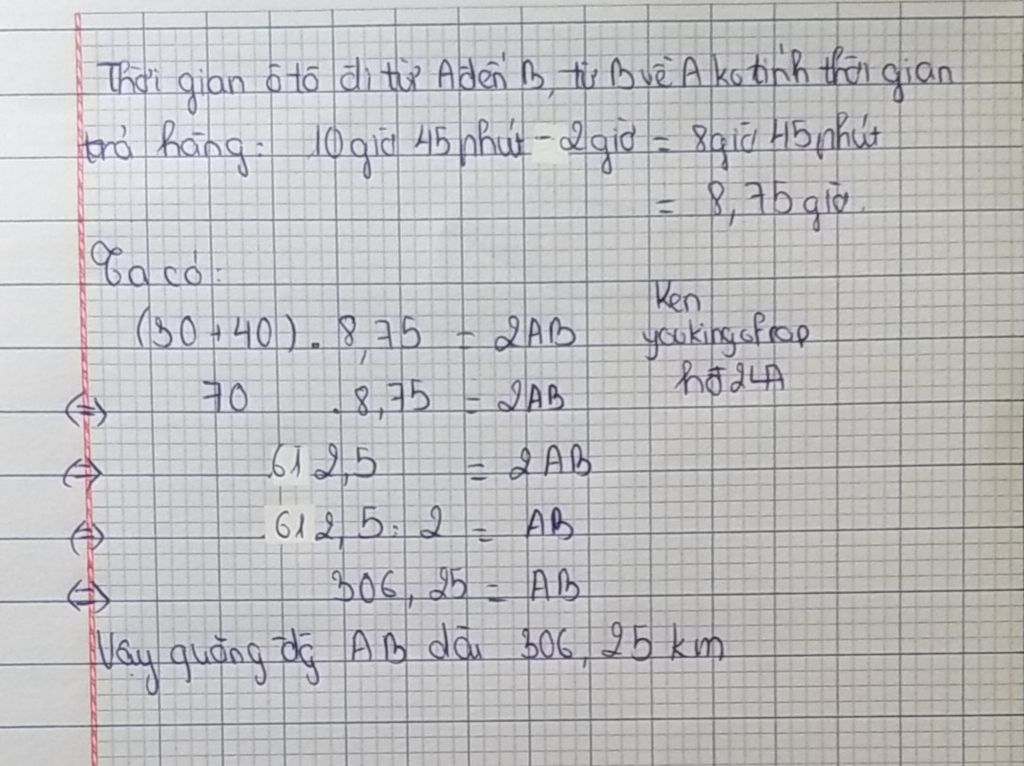 Thời gian ô tô đi từ A đến B, từ B về A ko tính thời gian
trả hàng: 10 giờ 45 phút - 2 giờ = 8 giờ 45 phút
= 8,75 giờ.
Ta có:
(30 + 40) . 8,75 = 2AB
Ken
youkingofrap
hđ24A
⇔ 70 . 8,75 = 2AB
⇔ 612,5 = 2AB
⇔ 612,5 : 2 = AB
⇔ 306,25 = AB
Vậy quãng đg AB dài 306,25 km